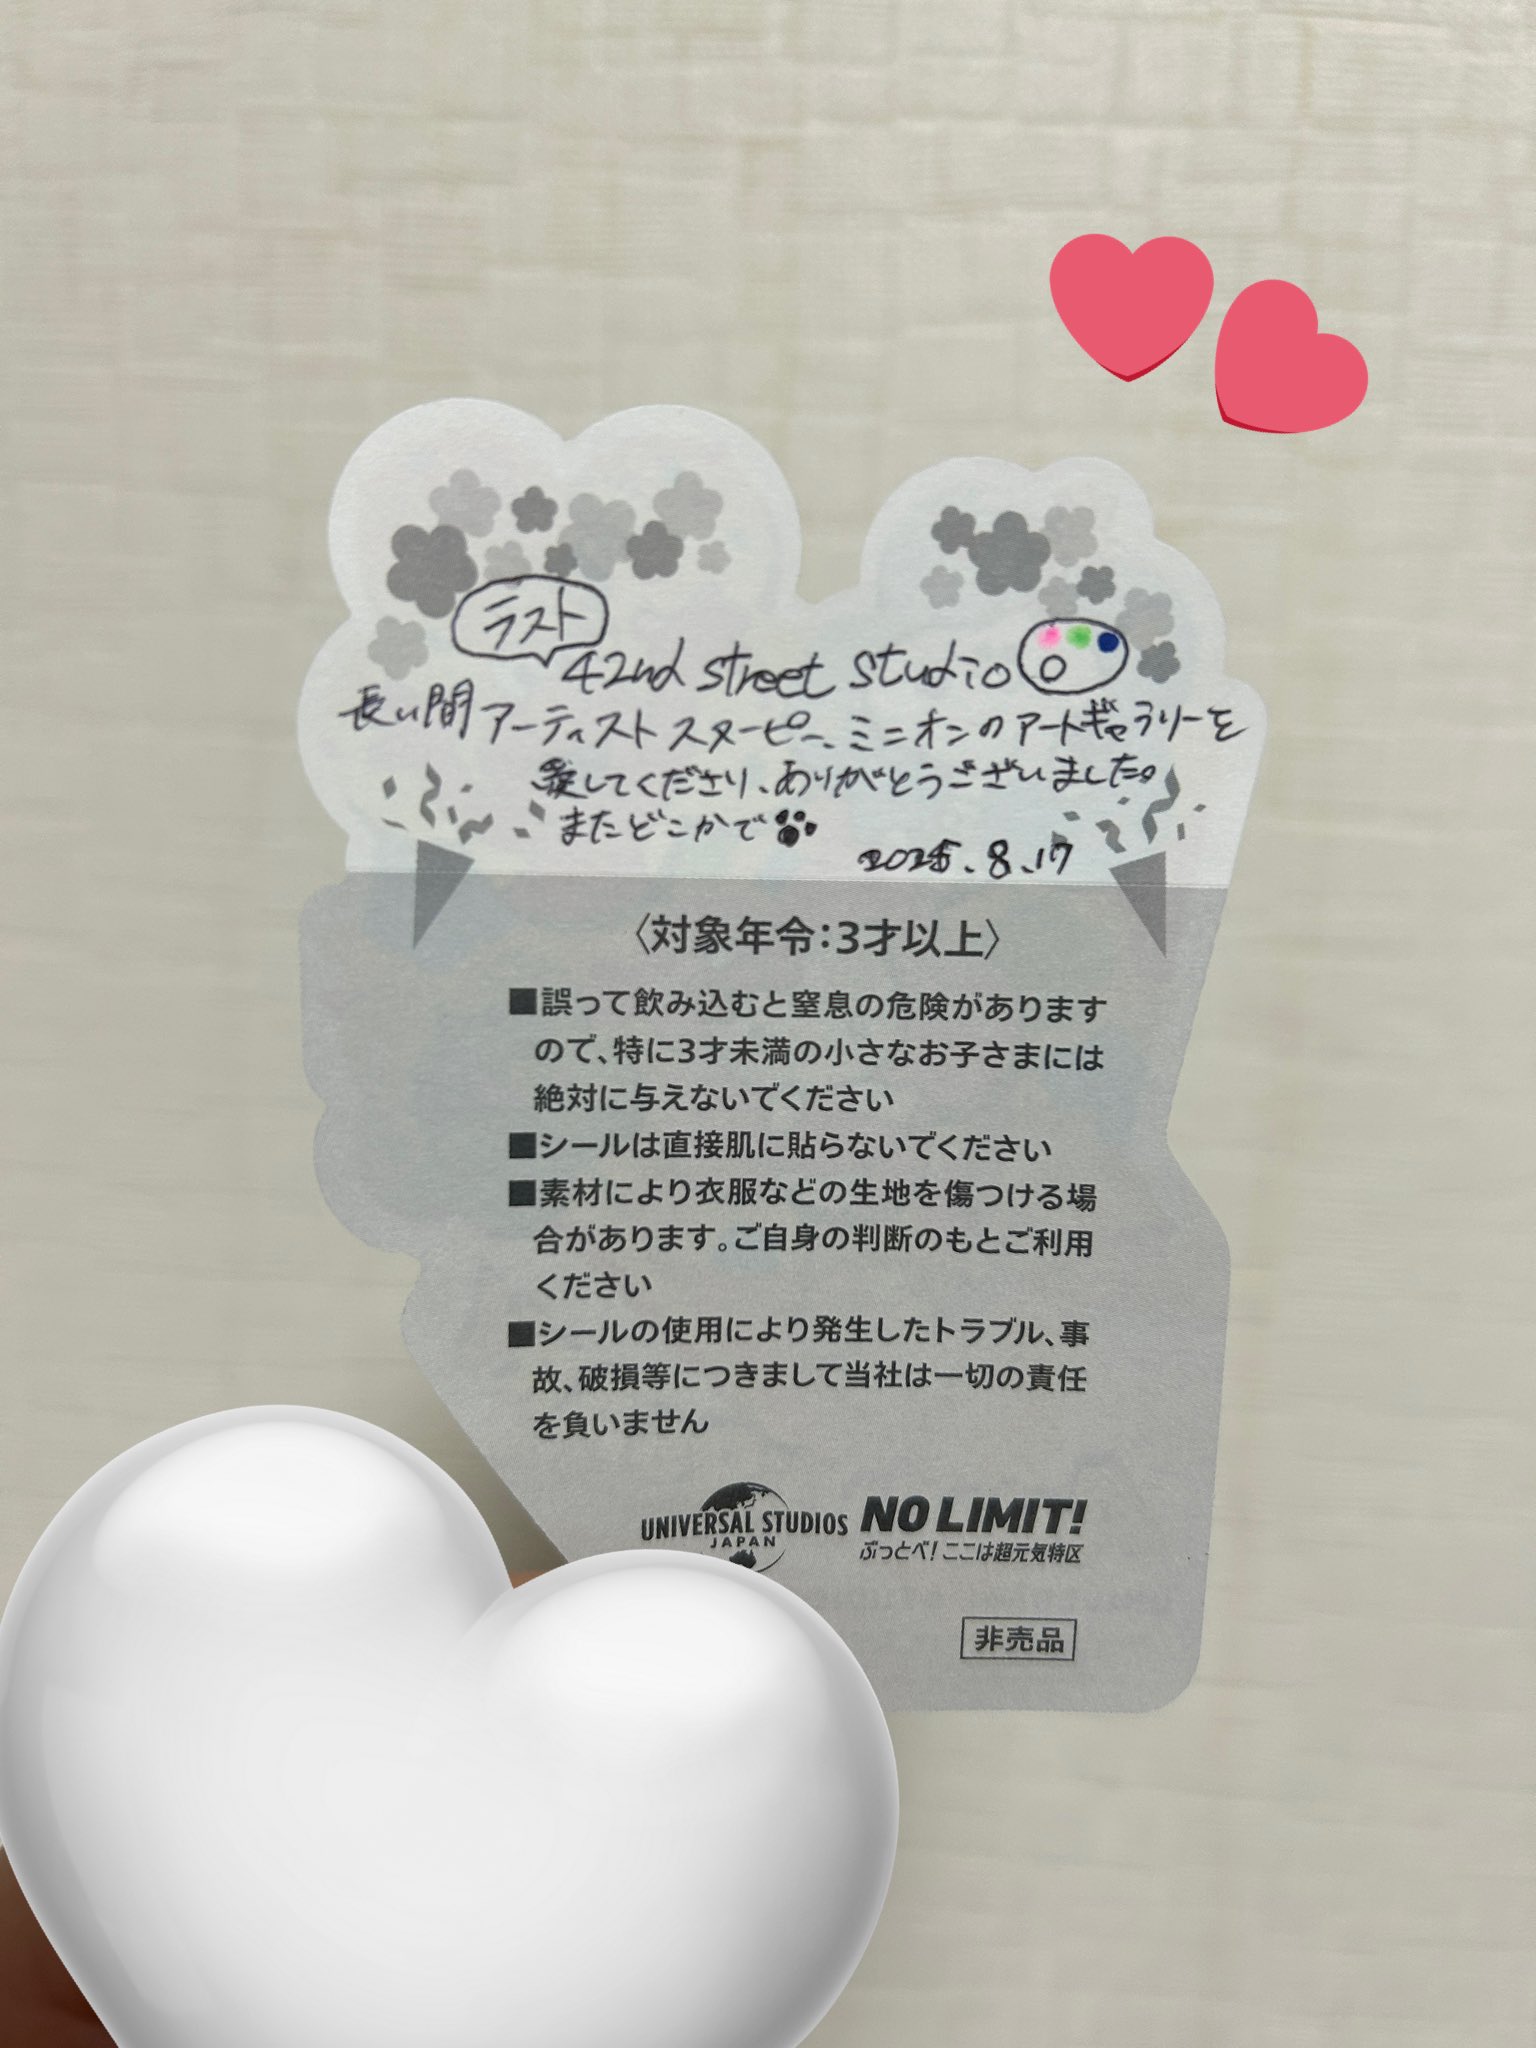 ラスト
42nd street studio
長い間アーティストスヌーピー、ミニオンのアートギャラリーを
愛してくださり、ありがとうございました。
またどこかで
2025.8.17
〈対象年令:3才以上〉
■誤って飲み込むと窒息の危険があります
ので、特に3才未満の小さなお子さまには
絶対に与えないでください
■シールは直接肌に貼らないでください
■素材により衣服などの生地を傷つける場
合があります。ご自身の判断のもとご利用
ください
■シールの使用により発生したトラブル、事
故、破損等につきまして当社は一切の責任
を負いません
UNIVERSAL STUDIOS
JAPAN
NO LIMIT!
ぶっとべ!ここは超元気特区
非売品